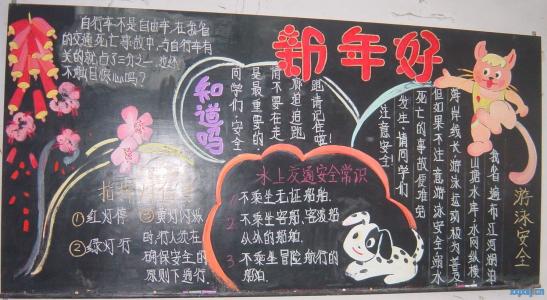 新年好
自行车不是自由车,在我省
的交通死亡事故中,与自行车有
关的就占了三分之一,这还
不触目惊心吗?
知道吗
同学们,安全
是最重要的
请不要在走
廊追追跑,
请记住哦!
指挥
①红灯停
②绿灯行
③黄灯闪烁
时,行人须在
确保安全的
原则下通行.
水上交通安全常识
不乘坐无证船舶.
2.不乘坐客船,客渡船
以外的船舶.
3.不乘坐冒险航行的
船舶.
游泳安全
我省遍布江河湖泊
山塘水库,水网纵横
海岸线长,游泳运动极为普
但如果不注意游泳安全,溺水
死亡的事故便难免
发生,请同学们
注意安全!